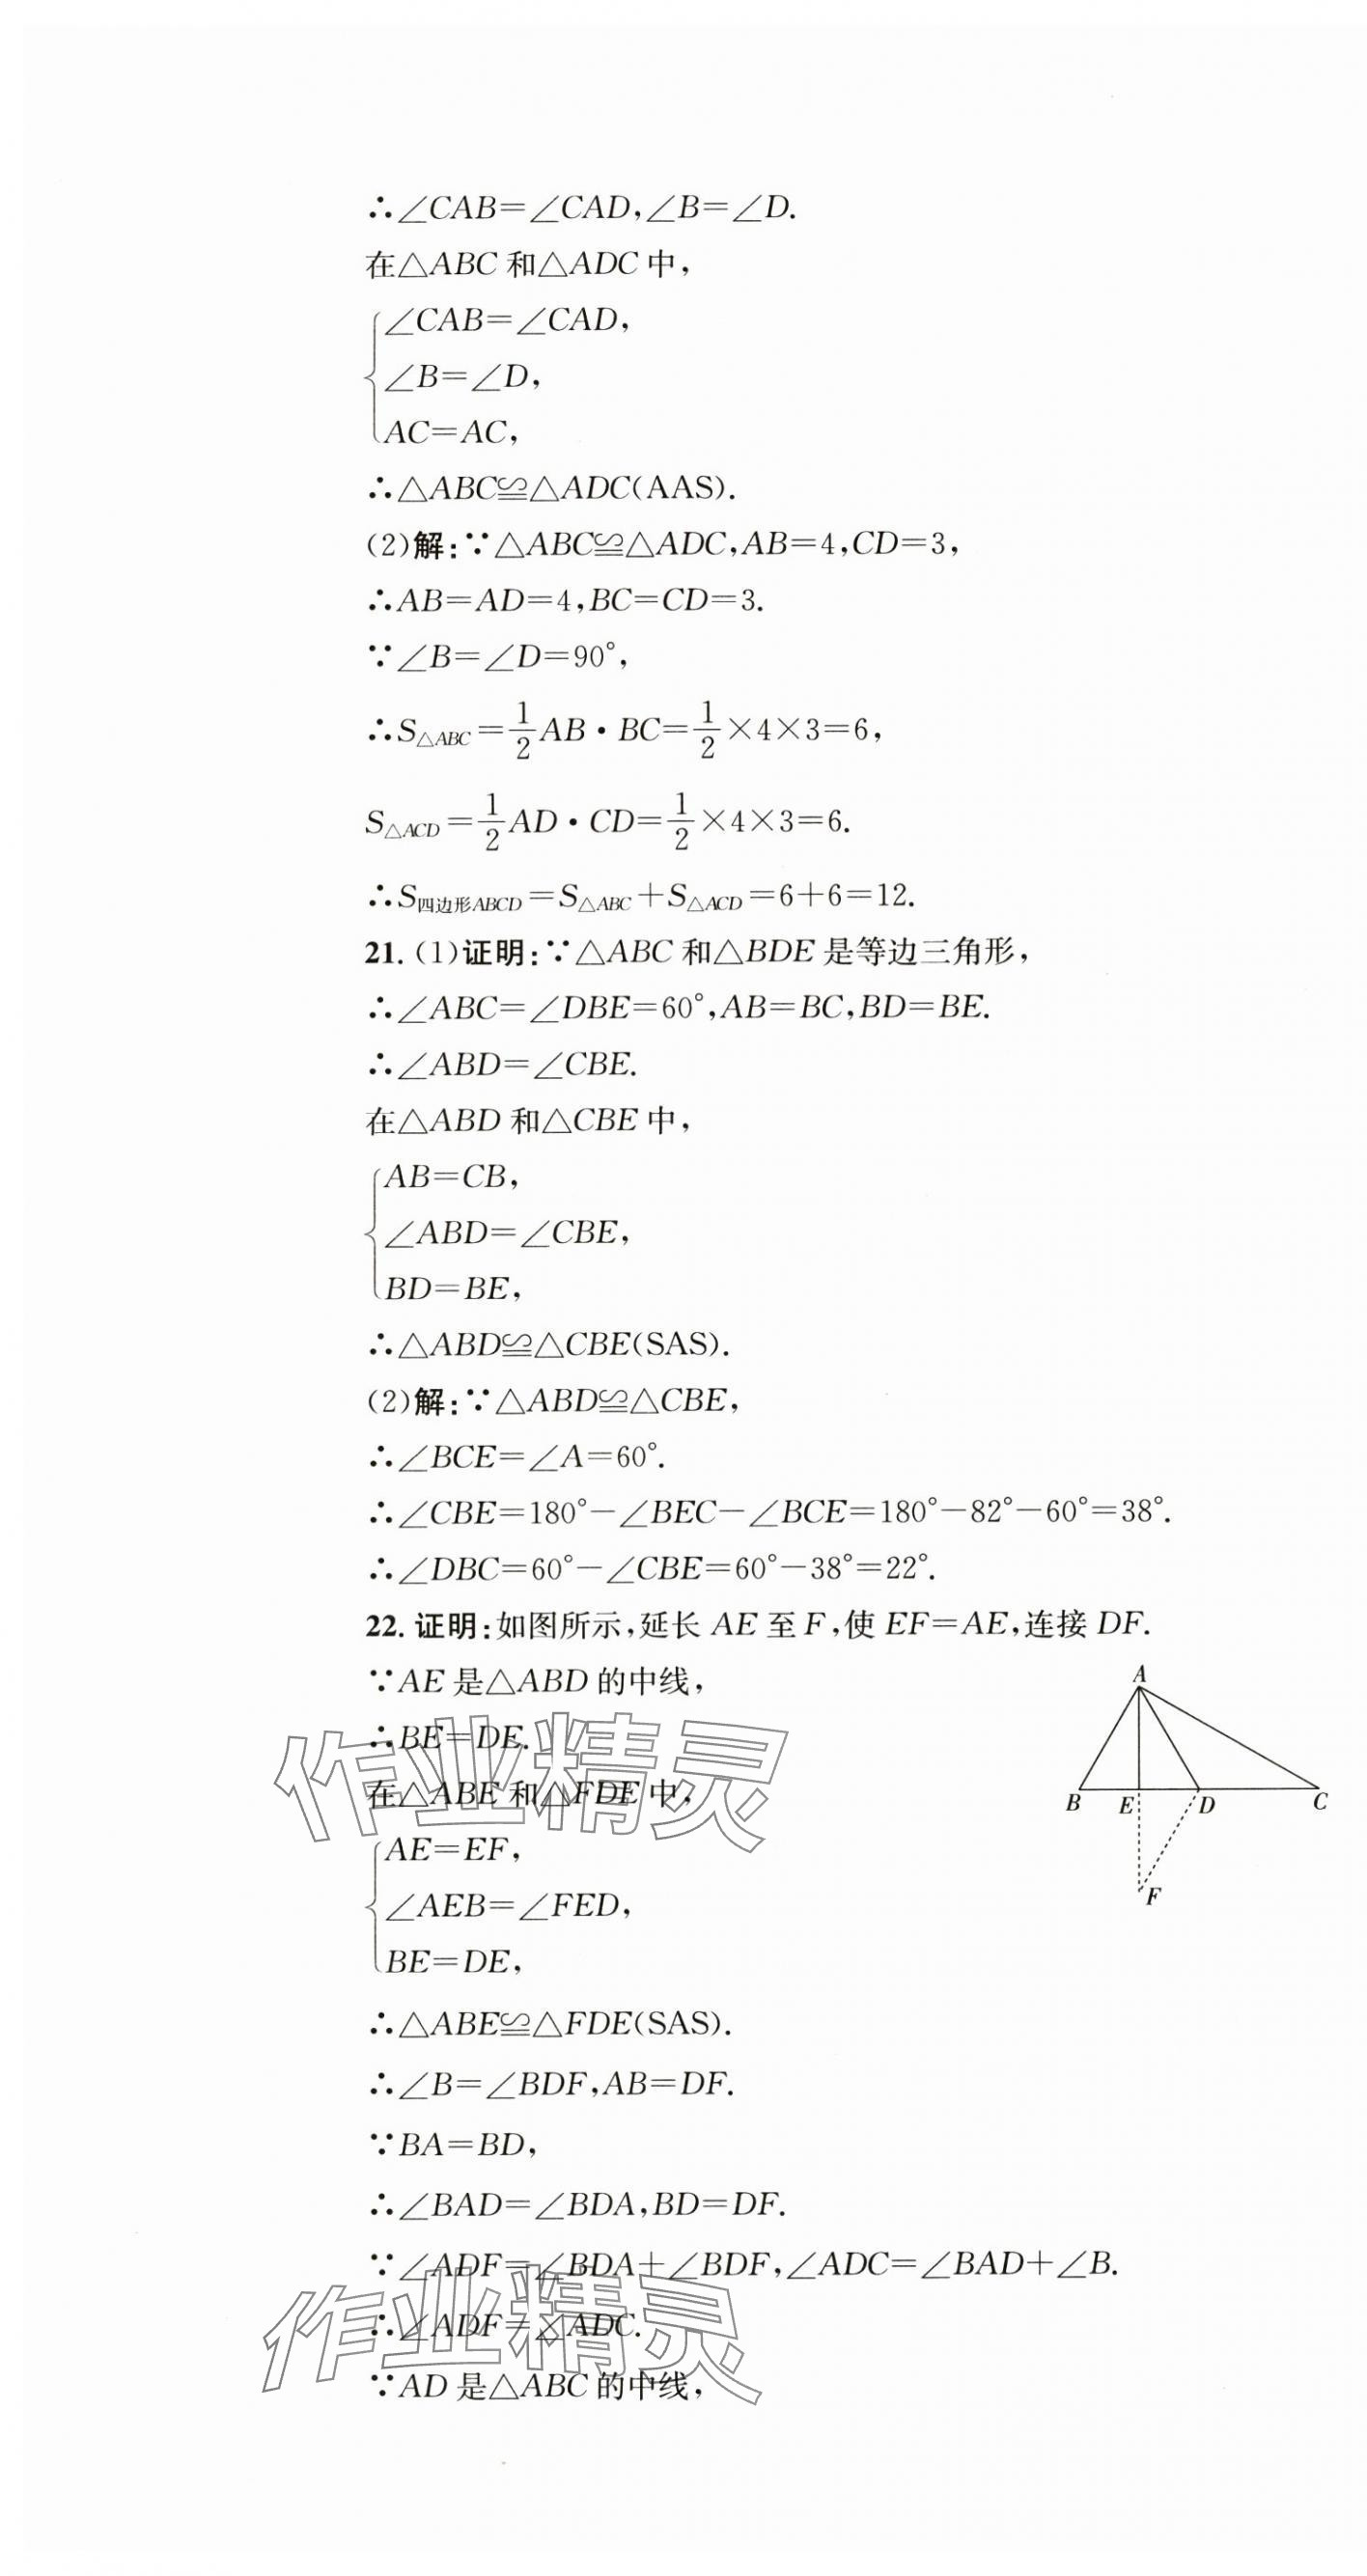 ∴∠CAB=∠CAD,∠B=∠D.
在△ABC和△ADC中,
∠CAB=∠CAD,
∠B=∠D,
AC=AC,
∴△ABC≌△ADC(AAS).
(2)解:∵△ABC≌△ADC,AB=4,CD=3,
∴AB=AD=4,BC=CD=3.
∵∠B=∠D=90°,
∴S△ABC=1/2AB·BC=1/2×4×3=6,
S△ACD=1/2AD·CD=1/2×4×3=6.
∴S四边形ABCD=S△ABC+S△ACD=6+6=12.
21.(1)证明:∵△ABC和△BDE是等边三角形,
∴∠ABC=∠DBE=60°,AB=BC,BD=BE.
∴∠ABD=∠CBE.
在△ABD和△CBE中,
AB=CB,
∠ABD=∠CBE,
BD=BE,
∴△ABD≌△CBE(SAS).
(2)解:∵△ABD≌△CBE,
∴∠BCE=∠A=60°.
∴∠CBE=180°-∠BEC-∠BCE=180°-82°-60°=38°.
∴∠DBC=60°-∠CBE=60°-38°=22°.
22.证明:如图所示,延长AE至F,使EF=AE,连接DF.
∵AE是△ABD的中线,
∴BE=DE.
在△ABE和△FDE中,
AE=EF,
∠AEB=∠FED,
BE=DE,
A
B E D C
F
∴△ABE≌△FDE(SAS).
∴∠B=∠BDF,AB=DF.
∵BA=BD,
∴∠BAD=∠BDA,BD=DF.
∵∠ADF=∠BDA+∠BDF,∠ADC=∠BAD+∠B.
∴∠ADF=∠ADC.
∵AD是△ABC的中线,
作业精灵
作业精灵